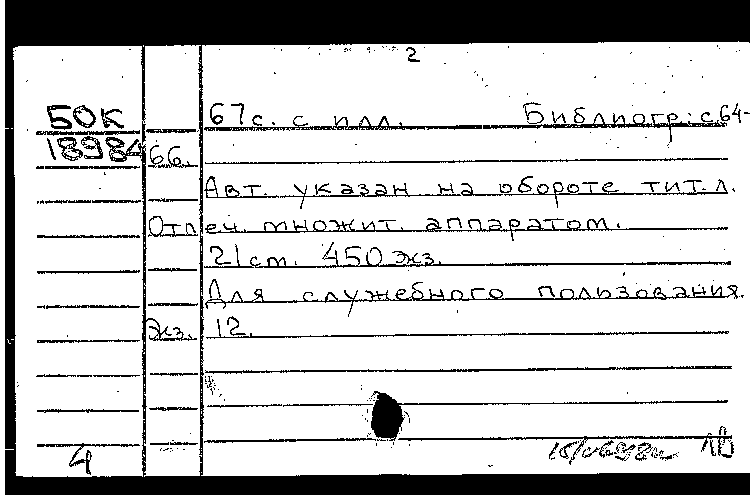 2
БОК 67с. с илл. Библиогр: с.64-
18984 66.
Авт. указан на обороте тит.л.
Отпеч. множит. аппаратом.
21 см. 450 экз.
Для служебного пользования.
Экз. 12.
4